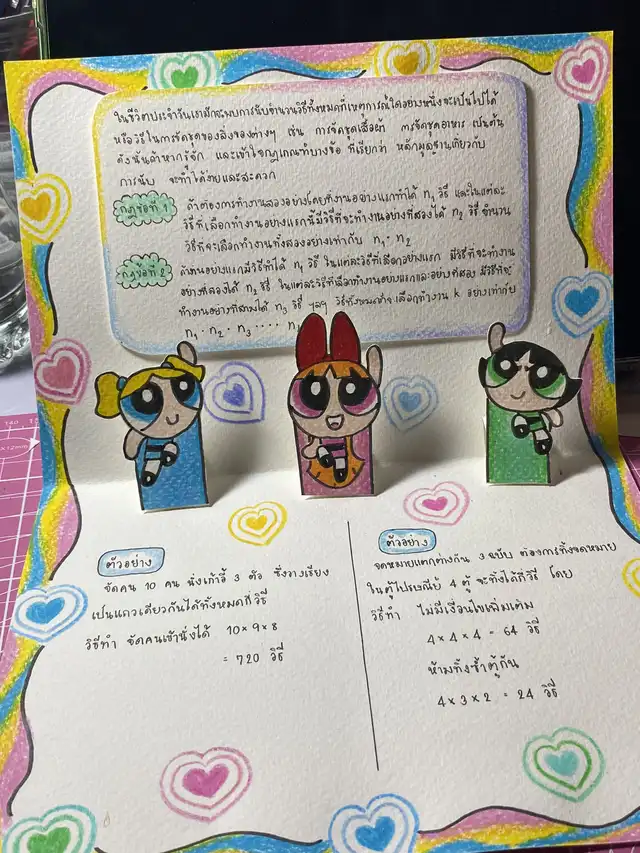 ในชีวิตประจำวันเรามักจะพบการนับจำนวนวิธีทั้งหมดที่เหตุการณ์ใดอย่างหนึ่งจะเป็นไปได้
หรือวิธีในการจัดชุดของสิ่งของต่างๆ เช่น การจัดชุดเสื้อผ้า การจัดชุดอาหาร เป็นต้น
ดังนั้นถ้าหากรู้จัก และเข้าใจกฎเกณฑ์บางข้อ ที่เรียกว่า หลักมูลฐานเกี่ยวกับ
การนับ จะทำได้ง่ายและสะดวก
กฎข้อที่ 1 ถ้าต้องการทำงานสองอย่างโดยที่งานอย่างแรกทำได้ n₁ วิธี และในแต่ละ
วิธีที่เลือกทำงานอย่างแรกนี้มีวิธีที่จะทำงานอย่างที่สองได้ n₂ วิธี จำนวน
วิธีที่จะเลือกทำงานทั้งสองอย่างเท่ากับ n₁ · n₂
กฎข้อที่ 2 ถ้างานอย่างแรกมีวิธีทำได้ n₁ วิธี ในแต่ละวิธีที่เลือกอย่างแรก มีวิธีที่จะทำงาน
อย่างที่สองได้ n₂ วิธี ในแต่ละวิธีที่เลือกทำงานอย่างแรกและอย่างที่สอง มีวิธีที่จะ
ทำงานอย่างที่สามได้ n₃ วิธี ฯลฯ วิธีทั้งหมดที่จะเลือกทำงาน k อย่างเท่ากับ
n₁ · n₂ · n₃ ····
ตัวอย่าง
จัดคน 10 คน นั่งเก้าอี้ 3 ตัว ซึ่งวางเรียง
เป็นแถวเดียวกันได้ทั้งหมดกี่วิธี
วิธีทำ จัดคนเข้านั่งได้ 10×9×8
= 720 วิธี
ตัวอย่าง
จดหมายแตกต่างกัน 3 ฉบับ ต้องการทิ้งจดหมาย
ในตู้ไปรษณีย์ 4 ตู้ จะทิ้งได้กี่วิธี โดย
วิธีทำ ไม่มีเงื่อนไขเพิ่มเติม
4 × 4 × 4 = 64 วิธี
ห้ามทิ้งซ้ำตู้กัน
4 × 3 × 2 = 24 วิธี